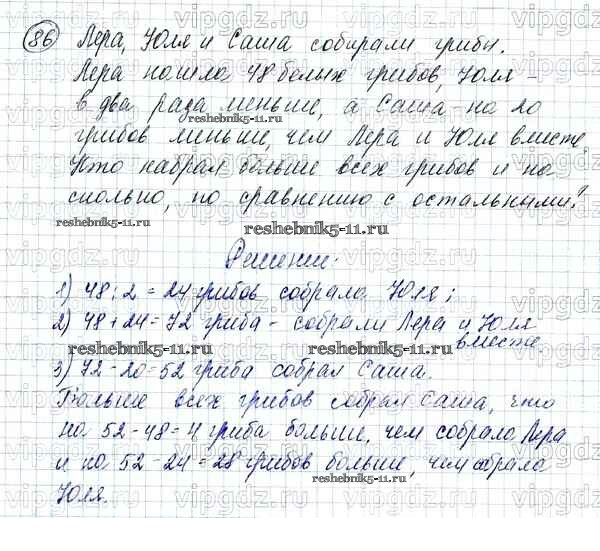 86 Лера, Юля и Саша собирали грибы.
Лера нашла 48 белых грибов, Юля -
в два раза меньше, а Саша - на 20
reshebnik5-11.ru
грибов меньше, чем Лера и Юля вместе.
Кто набрал больше всех грибов и на
сколько, по сравнению с остальными?
reshebnik5-11.ru reshebnik5-11.ru
Решение.
1) 48 : 2 = 24 грибов собрала Юля;
2) 48 + 24 = 72 гриба - собрали Лера и Юля
вместе.
reshebnik5-11.ru reshebnik5-11.ru
3) 72 - 20 = 52 гриба собрал Саша.
Больше всех грибов собрал Саша, что
на 52 - 48 = 4 гриба больше, чем собрала Лера
и на 52 - 24 = 28 грибов больше, чем собрала
reshebnik5-11.ru
Юля.
reshebnik5-11.ru